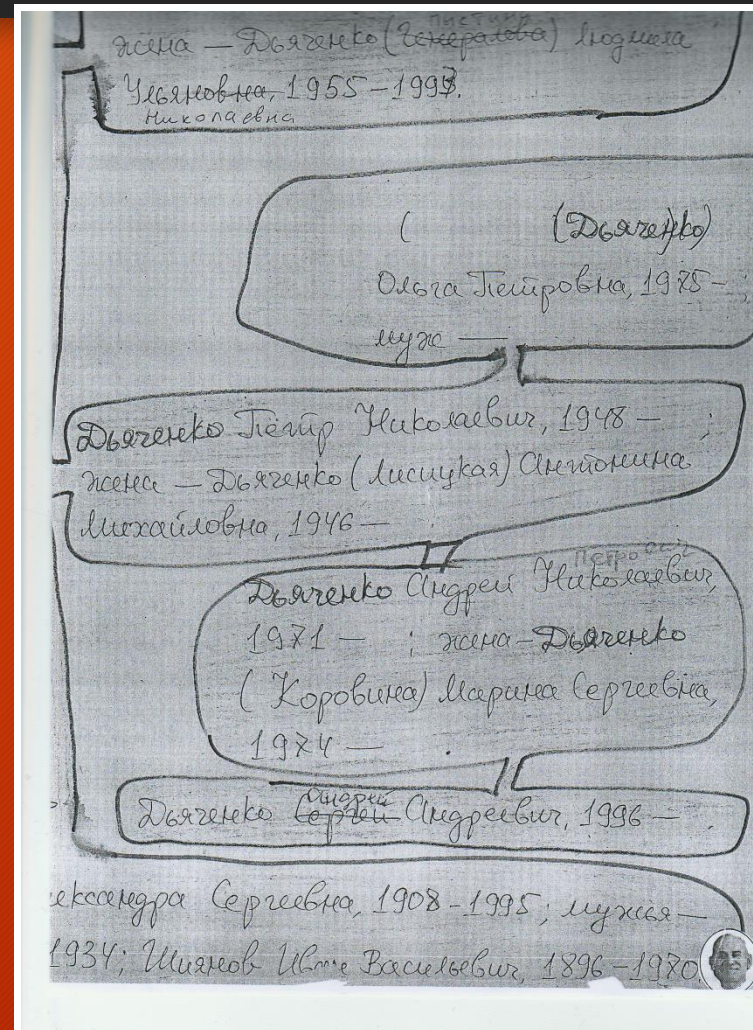 Пистику
жена — Дьяченко (Генералова) Людмила
Ульяновна, 1955–1993.
Николаевна
( (Дьяченко)
Ольга Петровна, 1975 – ;
муж —
Дьяченко Пётр Николаевич, 1948 – ;
жена — Дьяченко (Лисицкая) Антонина
Михайловна, 1946 —
Петрович
Дьяченко Андрей Николаевич,
1971 — ; жена – Дьяченко
(Коровина) Марина Сергеевна,
1974 — .
Андрей
Дьяченко Сергей Андреевич, 1996 — .
ександра Сергеевна, 1908–1995; мужья —
1934; Шиянов Васильевич, 1896–1970